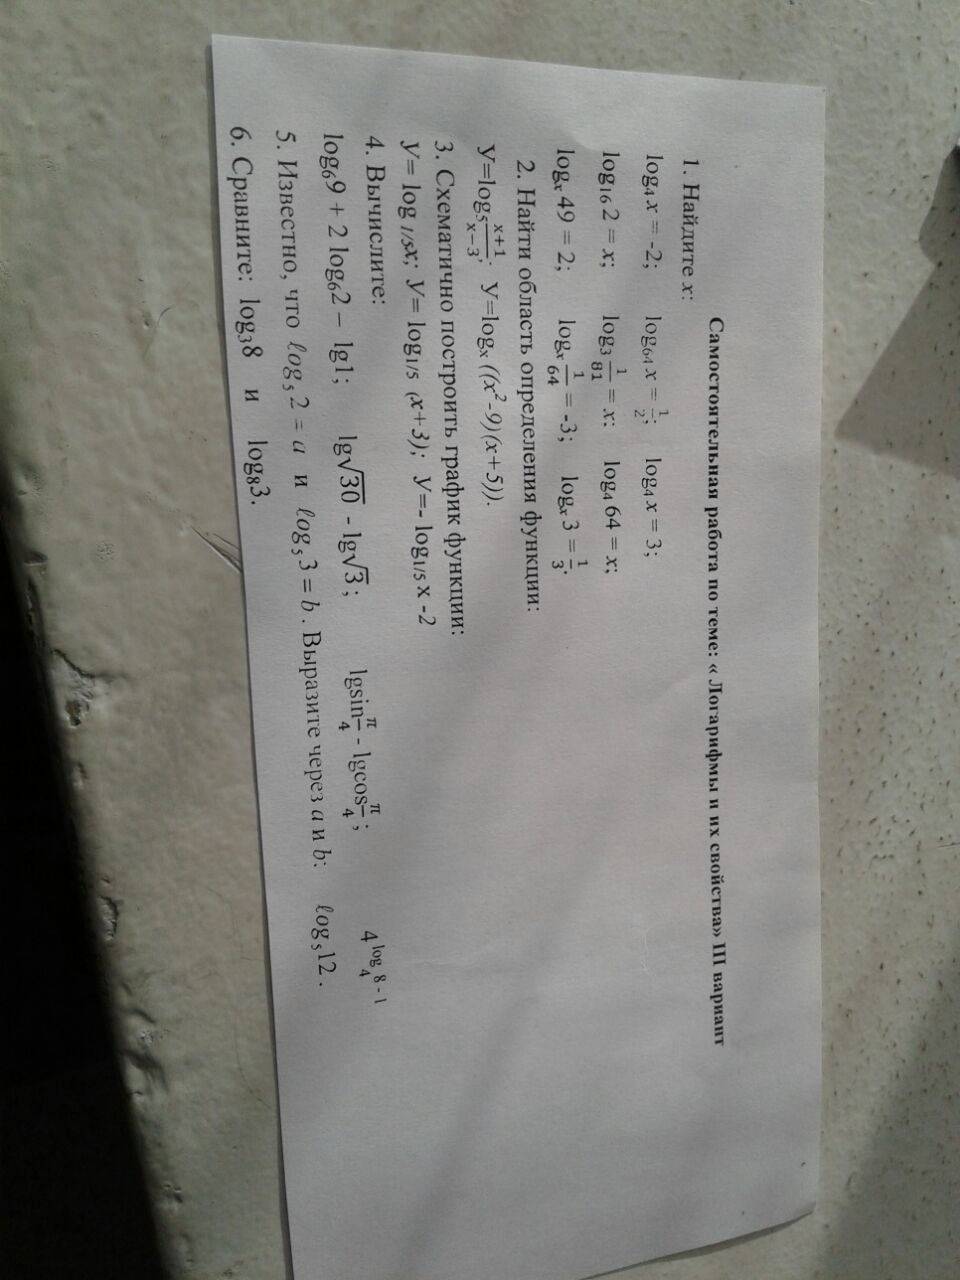 Самостоятельная работа по теме: « Логарифмы и их свойства» III вариант
1. Найдите x:
log₄x = -2; log₆₄x = 1/2; log₄x = 3;
log₁₆2 = x; log₃ 1/81 = x: log₄ 64 = x;
logₓ 49 = 2; logₓ 1/64 = -3; logₓ 3 = 1/3.
2. Найти область определения функции:
У=log₅ (x+1)/(x−3); У=logₓ ((x²-9)(x+5)).
3. Схематично построить график функции:
У= log 1/5x; У= log1/5 (x+3); У=- log1/5 x -2
4. Вычислите:
log₆9 + 2 log₆2 − lg1; lg√30 - lg√3; lgsin π/4 - lgcos π/4; 4^(log₄8 - 1)
5. Известно, что log₅2 = a и log₅3 = b. Выразите через a и b: log₅12.
6. Сравните: log₃8 и log₈3.